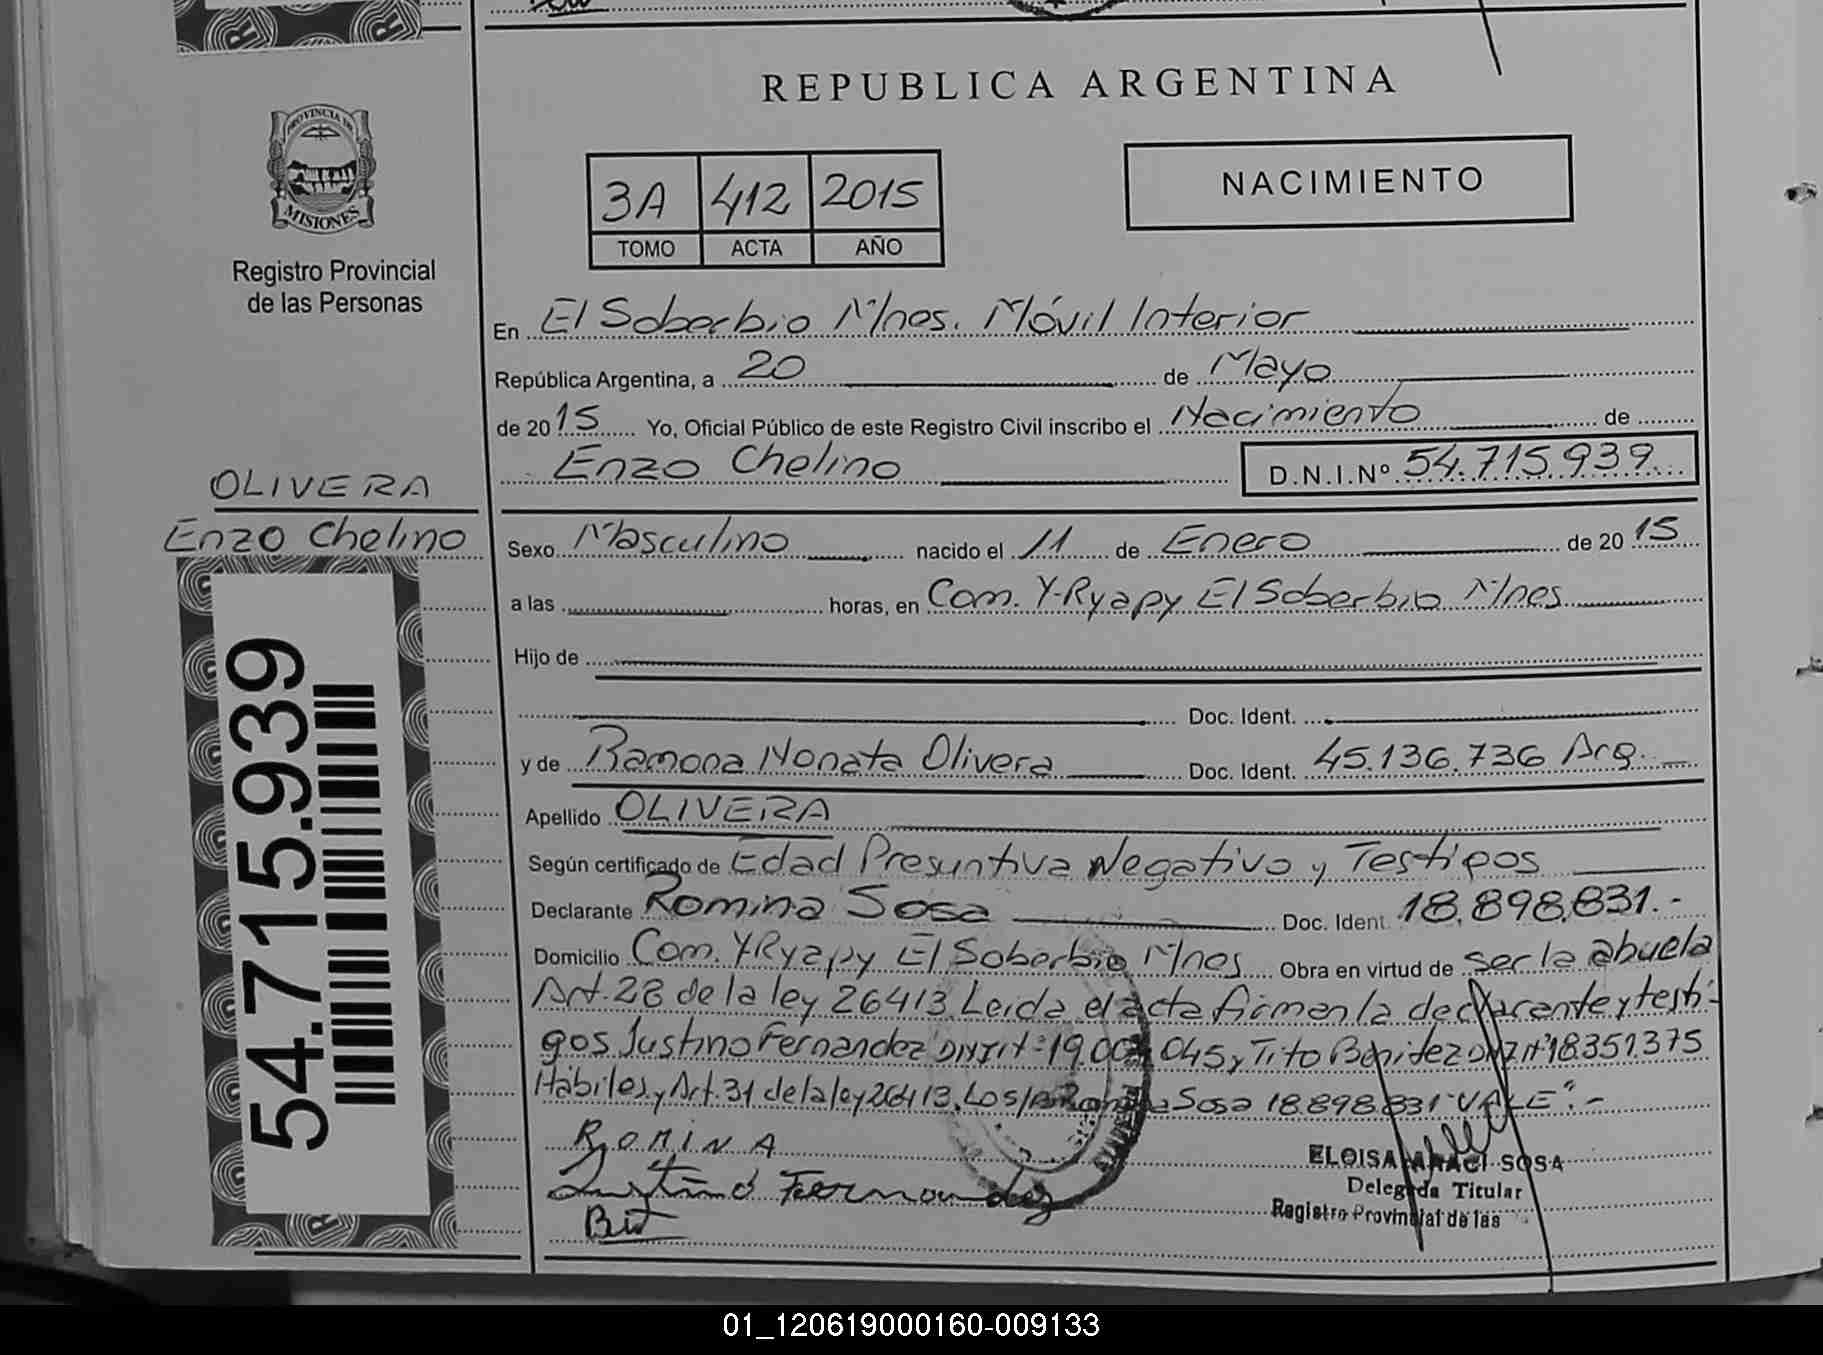 REPUBLICA ARGENTINA
PROVINCIA DE
MISIONES
Registro Provincial
de las Personas
3A 412 2015
TOMO ACTA AÑO
NACIMIENTO
En El Soberbio Mnes. Móvil Interior
República Argentina, a 20 de Mayo
de 2015 Yo, Oficial Público de este Registro Civil inscribo el Nacimiento de
Enzo Chelino D.N.I.Nº 54.715.939
OLIVERA
Enzo Chelino
54.715.939
Sexo Masculino nacido el 11 de Enero de 2015
a las horas, en Com. Y-Ryapy El Soberbio Mnes
Hijo de
Doc. Ident.
y de Ramona Nonata Olivera Doc. Ident. 45.136.736 Arg.
Apellido OLIVERA
Según certificado de Edad Presuntiva Negativo y Testigos
Declarante Romina Sosa Doc. Ident. 18.898.831.-
Domicilio Com. Y-Ryapy El Soberbio Mnes Obra en virtud de ser la abuela
Art. 28 de la ley 26413 Leida el acta firman la declarante y testi-
gos Justino Fernandez DNI Nº 19.00 045 y Tito Benitez DNI Nº 18.351.375
Hábiles y Art. 31 de la ley 26413. Sosa 18.898.831 "VALE".-
ROMINA
Justino Fernandez
ELOISA ARACI SOSA
Delegada Titular
Registro Provincial de las
01_120619000160-009133